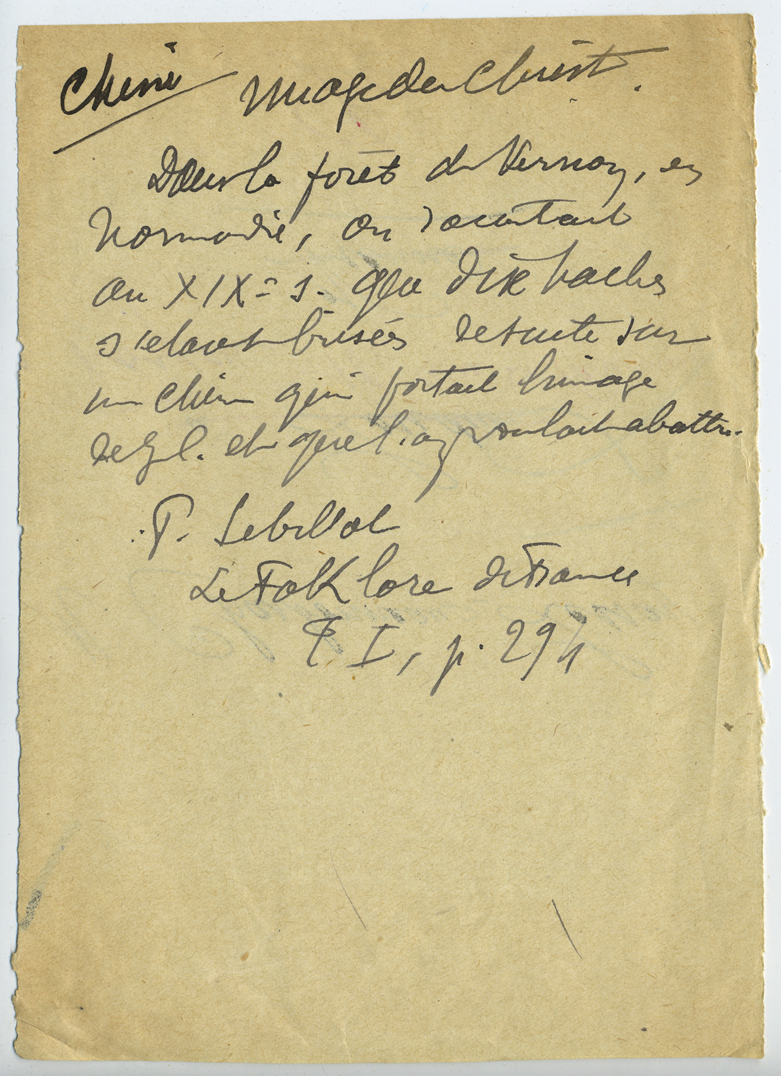 Chêne Image du Christ.
Dans la forêt de Vernon, en
Normandie, on racontait
au XIXe s. que dix haches
s'étaient brisées de suite sur
un chêne qui portait l'image
de J. C. et que l'on voulait abattre.
P. Sebillot
Le Folklore de France
T I, p. 294